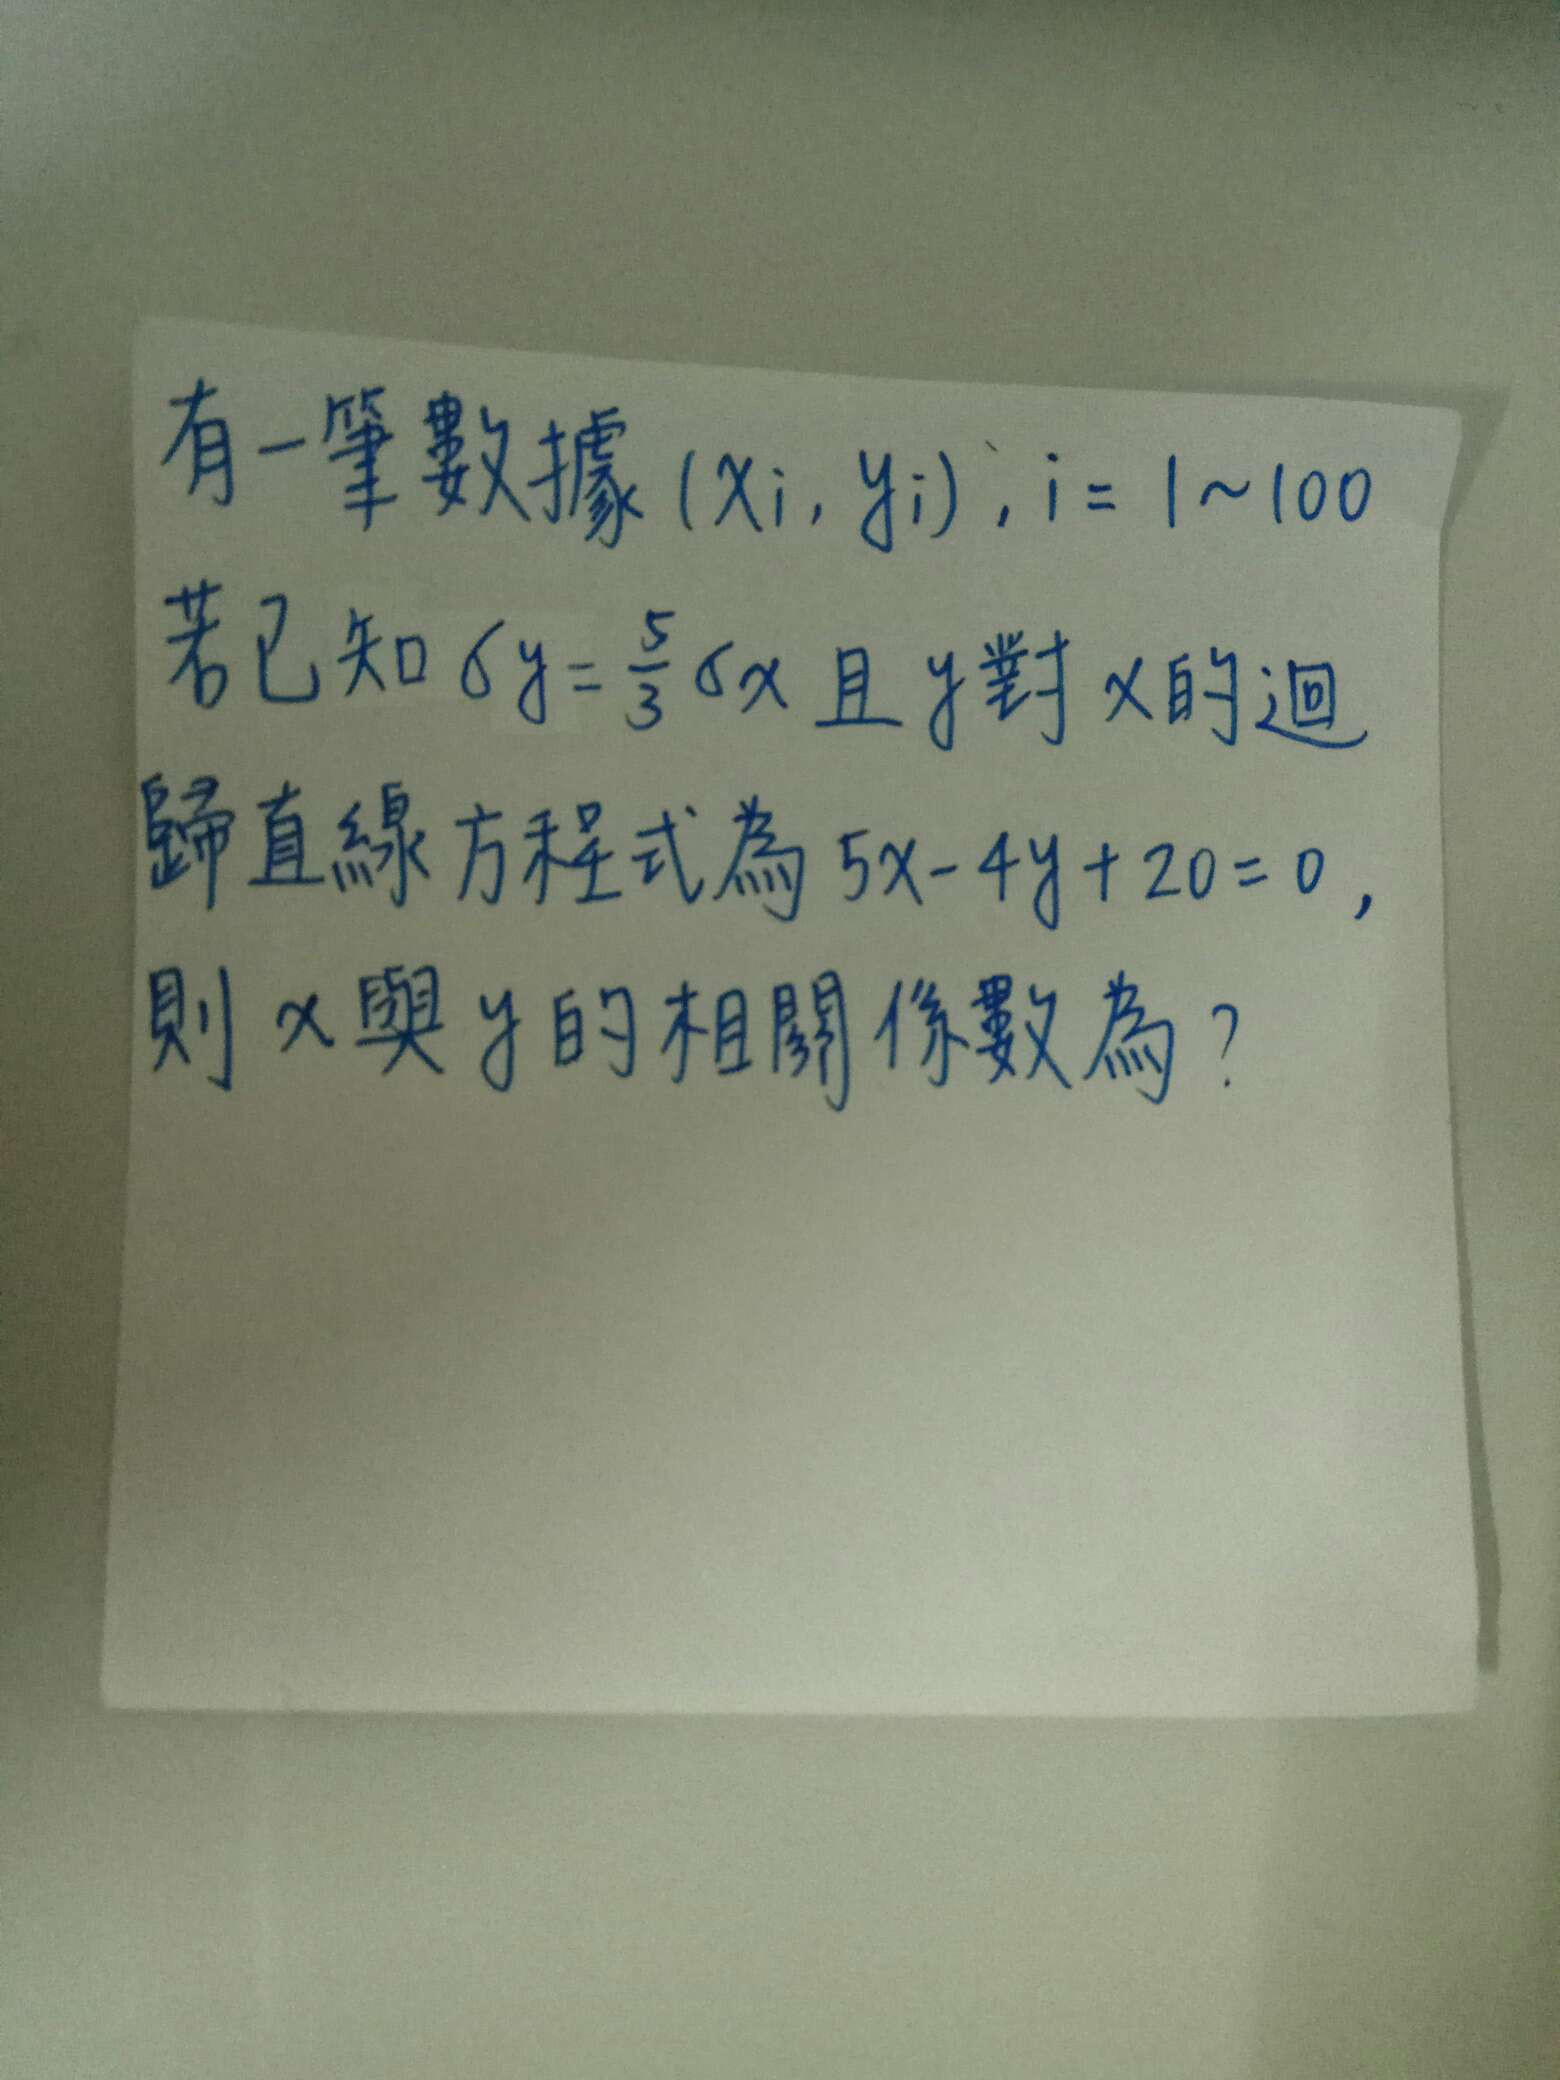 有一筆數據(xi, yi), i = 1~100
若已知 σy = 5/3 σx 且 y 對 x 的迴
歸直線方程式為 5x - 4y + 20 = 0,
則 x 與 y 的相關係數為?